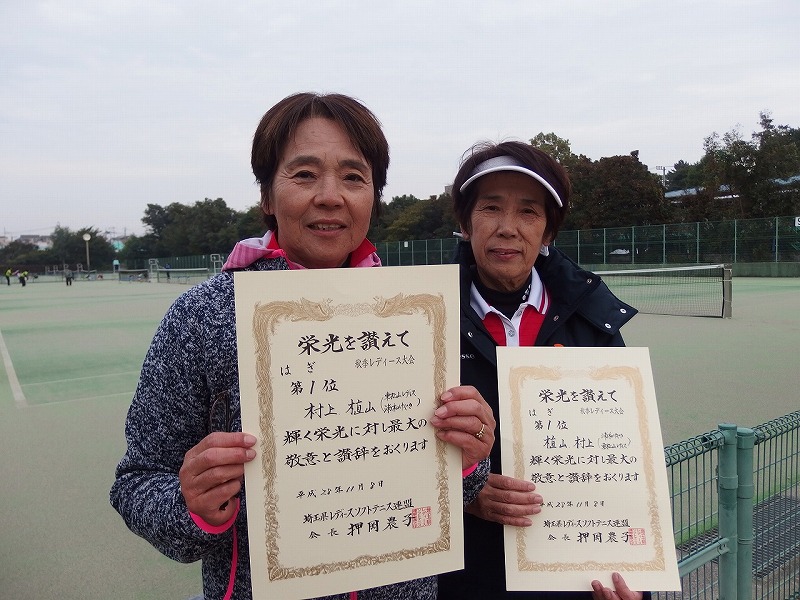 栄光を讃えて
はぎ 秋季レディース大会
第1位
村上 植山
輝く栄光に対し最大の
敬意と讃辞をおくります
平成28年11月8日
埼玉県レディースソフトテニス連盟
会長
栄光を讃えて
はぎ 秋季レディース大会
第1位
植山 村上
輝く栄光に対し最大の
敬意と讃辞をおくります
平成28年11月8日
埼玉県レディースソフトテニス連盟
会長